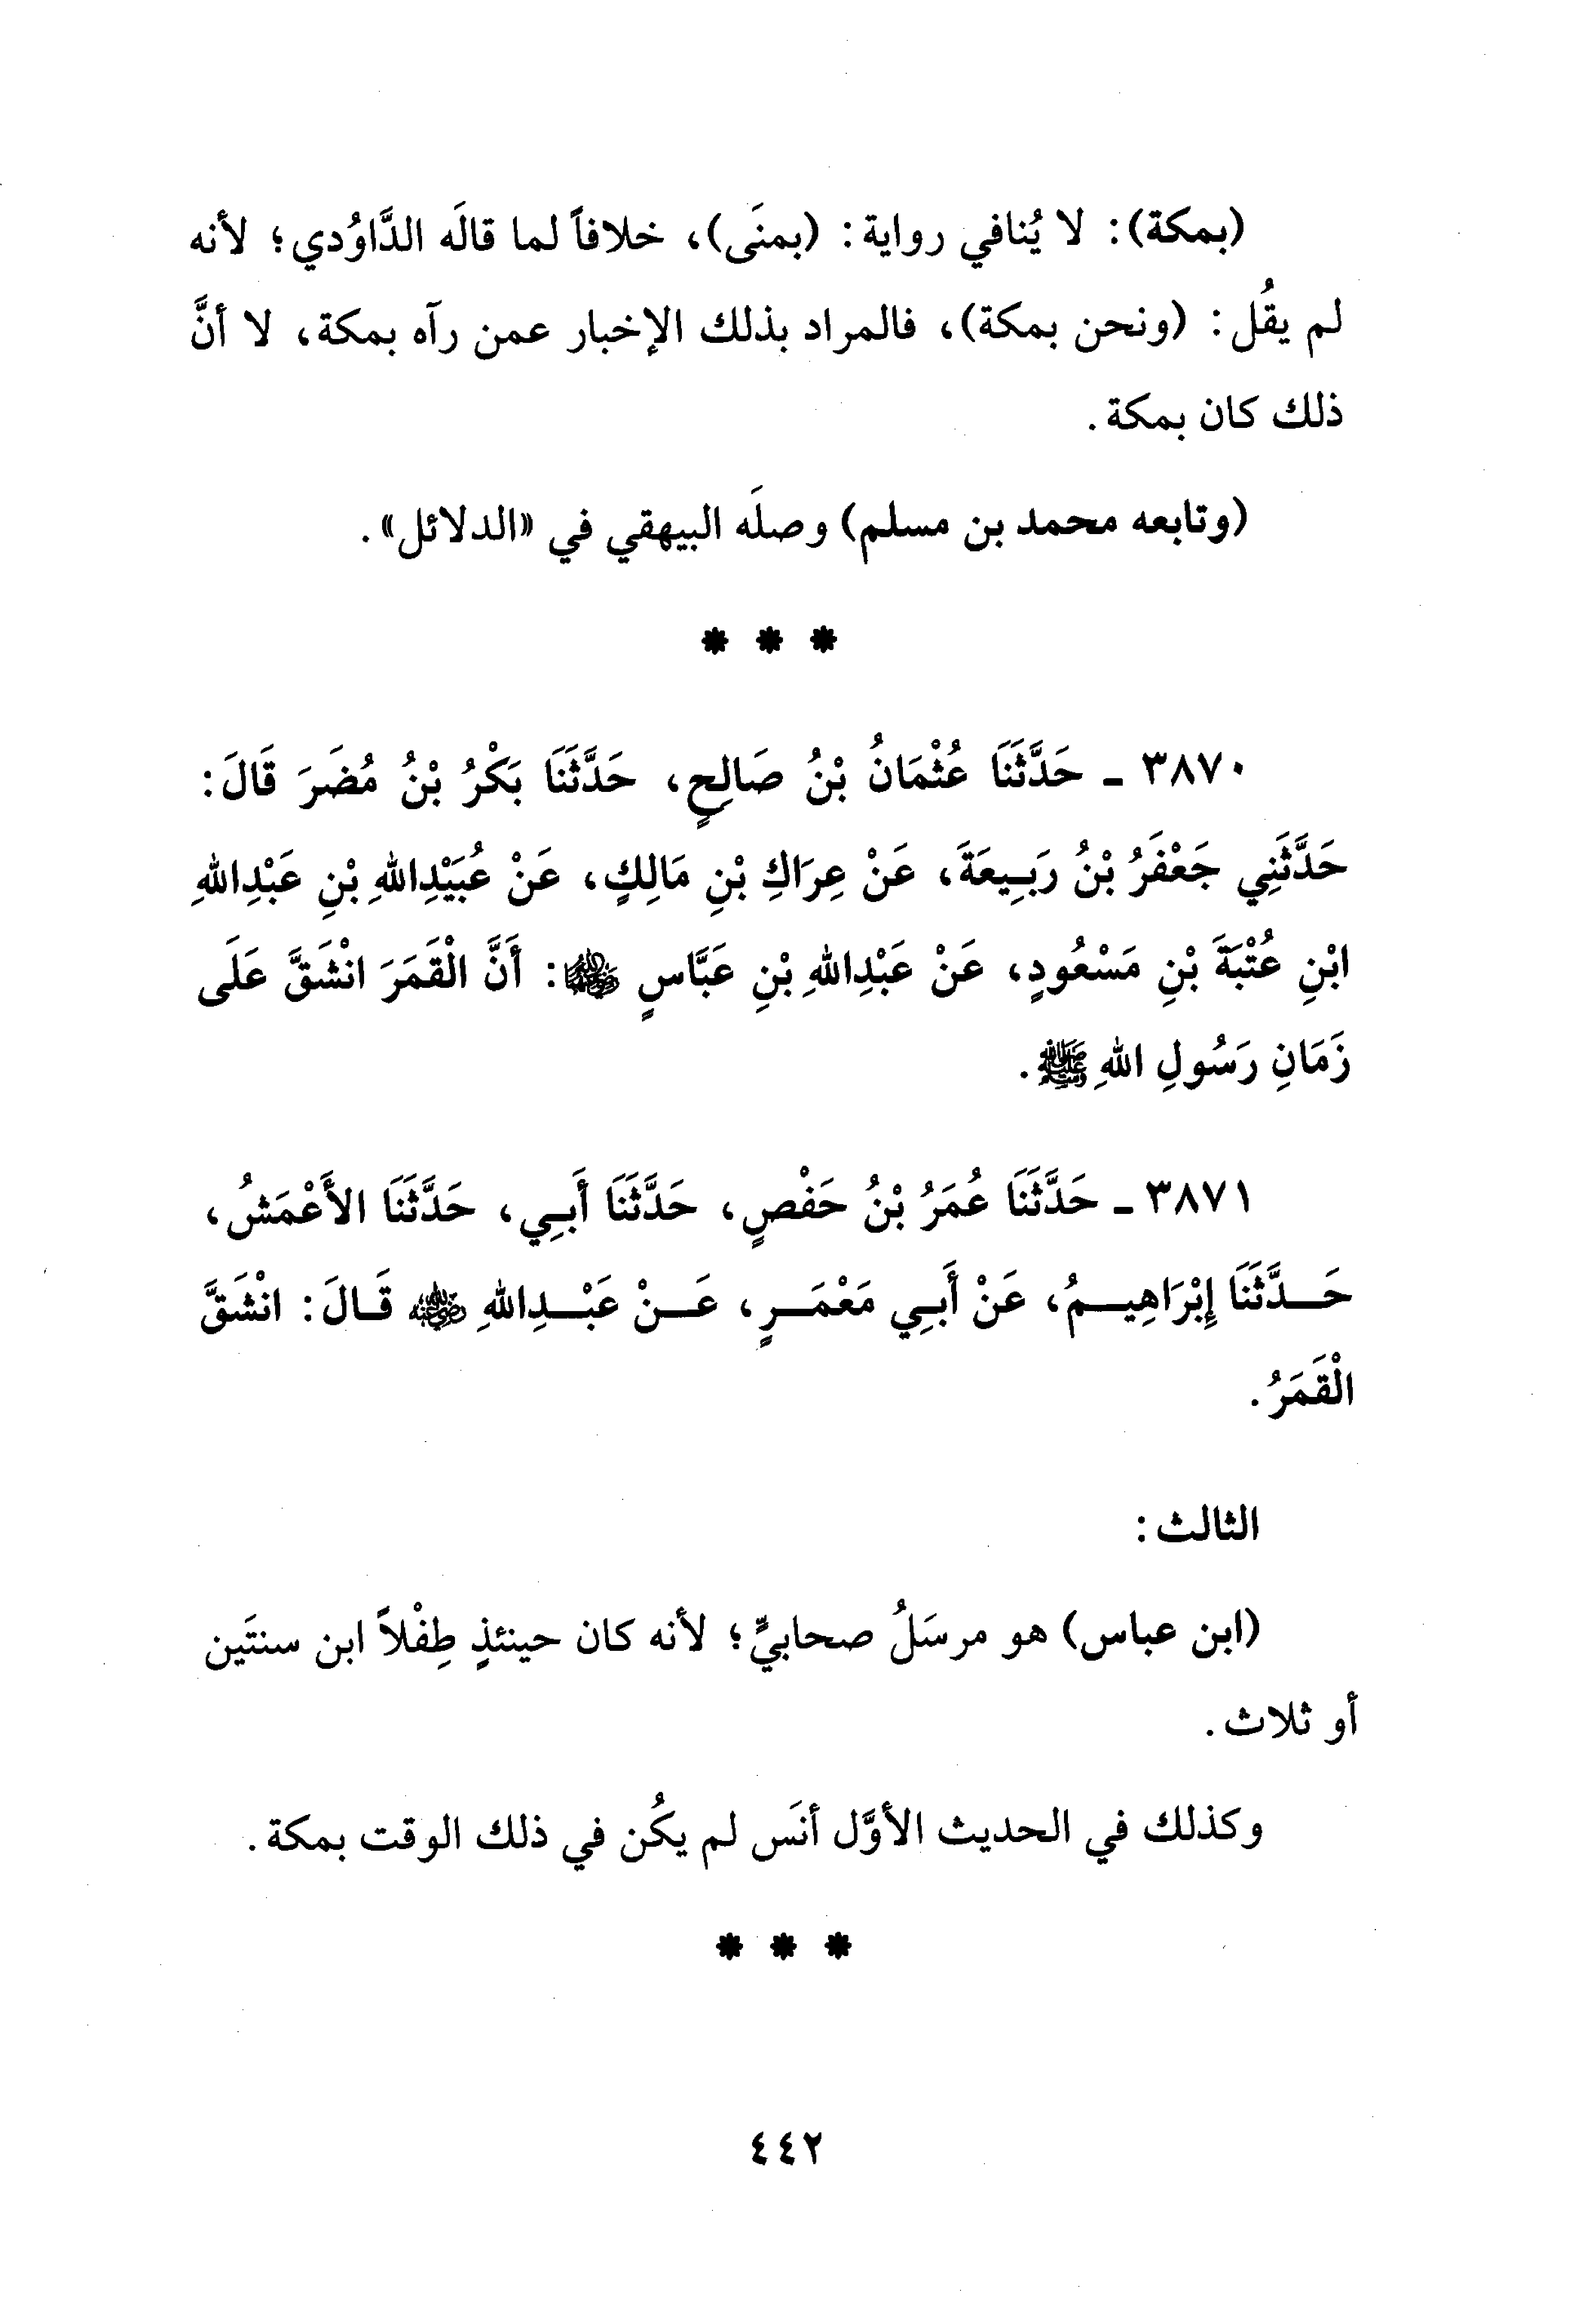 (بمكة): لا يُنافي رواية: (بمنَى)، خلافاً لما قالَه الدَّاوُدي؛ لأنه
لم يقُل: (ونحن بمكة)، فالمراد بذلك الإخبار عمن رآه بمكة، لا أنَّ
ذلك كان بمكة.
(وتابعه محمد بن مسلم) وصلَه البيهقي في «الدلائل».
* * *
٣٨٧٠ - حَدَّثَنَا عُثْمَانُ بْنُ صَالِحٍ، حَدَّثَنَا بَكْرُ بْنُ مُضَرَ قَالَ:
حَدَّثَنِي جَعْفَرُ بْنُ رَبِيعَةَ، عَنْ عِرَاكِ بْنِ مَالِكٍ، عَنْ عُبَيْدِاللهِ بْنِ عَبْدِاللهِ
ابْنِ عُتْبَةَ بْنِ مَسْعُودٍ، عَنْ عَبْدِاللهِ بْنِ عَبَّاسٍ رضي الله عنهما: أَنَّ الْقَمَرَ انْشَقَّ عَلَى
زَمَانِ رَسُولِ اللهِ ﷺ.
٣٨٧١ - حَدَّثَنَا عُمَرُ بْنُ حَفْصٍ، حَدَّثَنَا أَبِي، حَدَّثَنَا الأَعْمَشُ،
حَـدَّثَنَا إِبْرَاهِيـمُ، عَنْ أَبِي مَعْمَـرٍ، عَـنْ عَبْـدِاللهِ رضي الله عنه قَـالَ: انْشَقَّ
الْقَمَرُ.
الثالث:
(ابن عباس) هو مرسَلُ صحابيٍّ؛ لأنه كان حينئذٍ طِفْلاً ابن سنتَين
أو ثلاث.
وكذلك في الحديث الأوَّل أنَس لم يكُن في ذلك الوقت بمكة.
* * *
٤٤٢